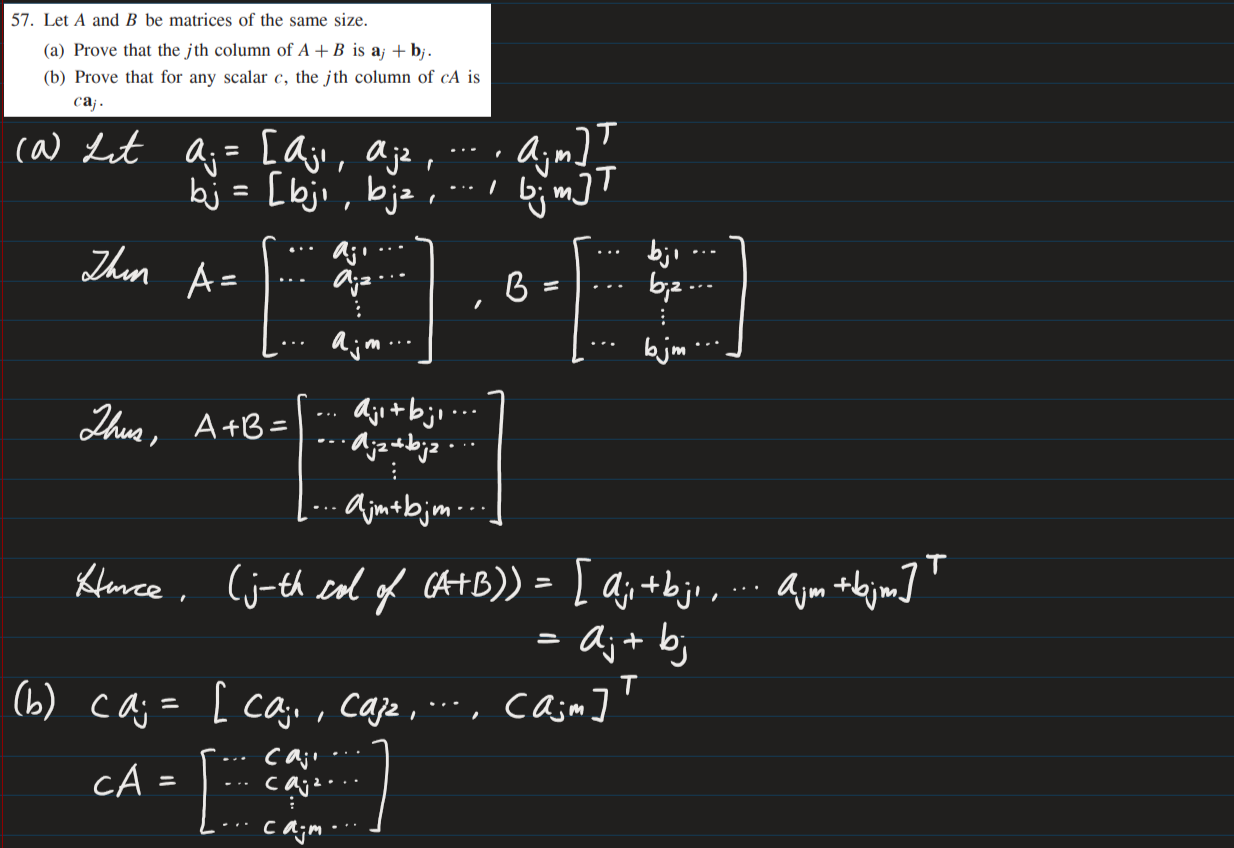 57. Let A and B be matrices of the same size.
(a) Prove that the jth column of A + B is aⱼ + bⱼ.
(b) Prove that for any scalar c, the jth column of cA is
caⱼ.
(a) Let aⱼ = [aⱼ₁, aⱼ₂, ⋯, aⱼₘ]ᵀ
bⱼ = [bⱼ₁, bⱼ₂, ⋯, bⱼₘ]ᵀ
Then A = [⋯ aⱼ₁ ⋯ ⋯ aⱼ₂ ⋯ ⋮ ⋯ aⱼₘ ⋯], B = [⋯ bⱼ₁ ⋯ ⋯ bⱼ₂ ⋯ ⋮ ⋯ bⱼₘ ⋯]
Thus, A+B = [⋯ aⱼ₁+bⱼ₁ ⋯ ⋯ aⱼ₂+bⱼ₂ ⋯ ⋮ ⋯ aⱼₘ+bⱼₘ ⋯]
Hence, (j-th col of (A+B)) = [aⱼ₁+bⱼ₁, ⋯ aⱼₘ+bⱼₘ]ᵀ
= aⱼ + bⱼ
(b) caⱼ = [caⱼ₁, caⱼ₂, ⋯, caⱼₘ]ᵀ
cA = [⋯ caⱼ₁ ⋯ ⋯ caⱼ₂ ⋯ ⋮ ⋯ caⱼₘ ⋯]